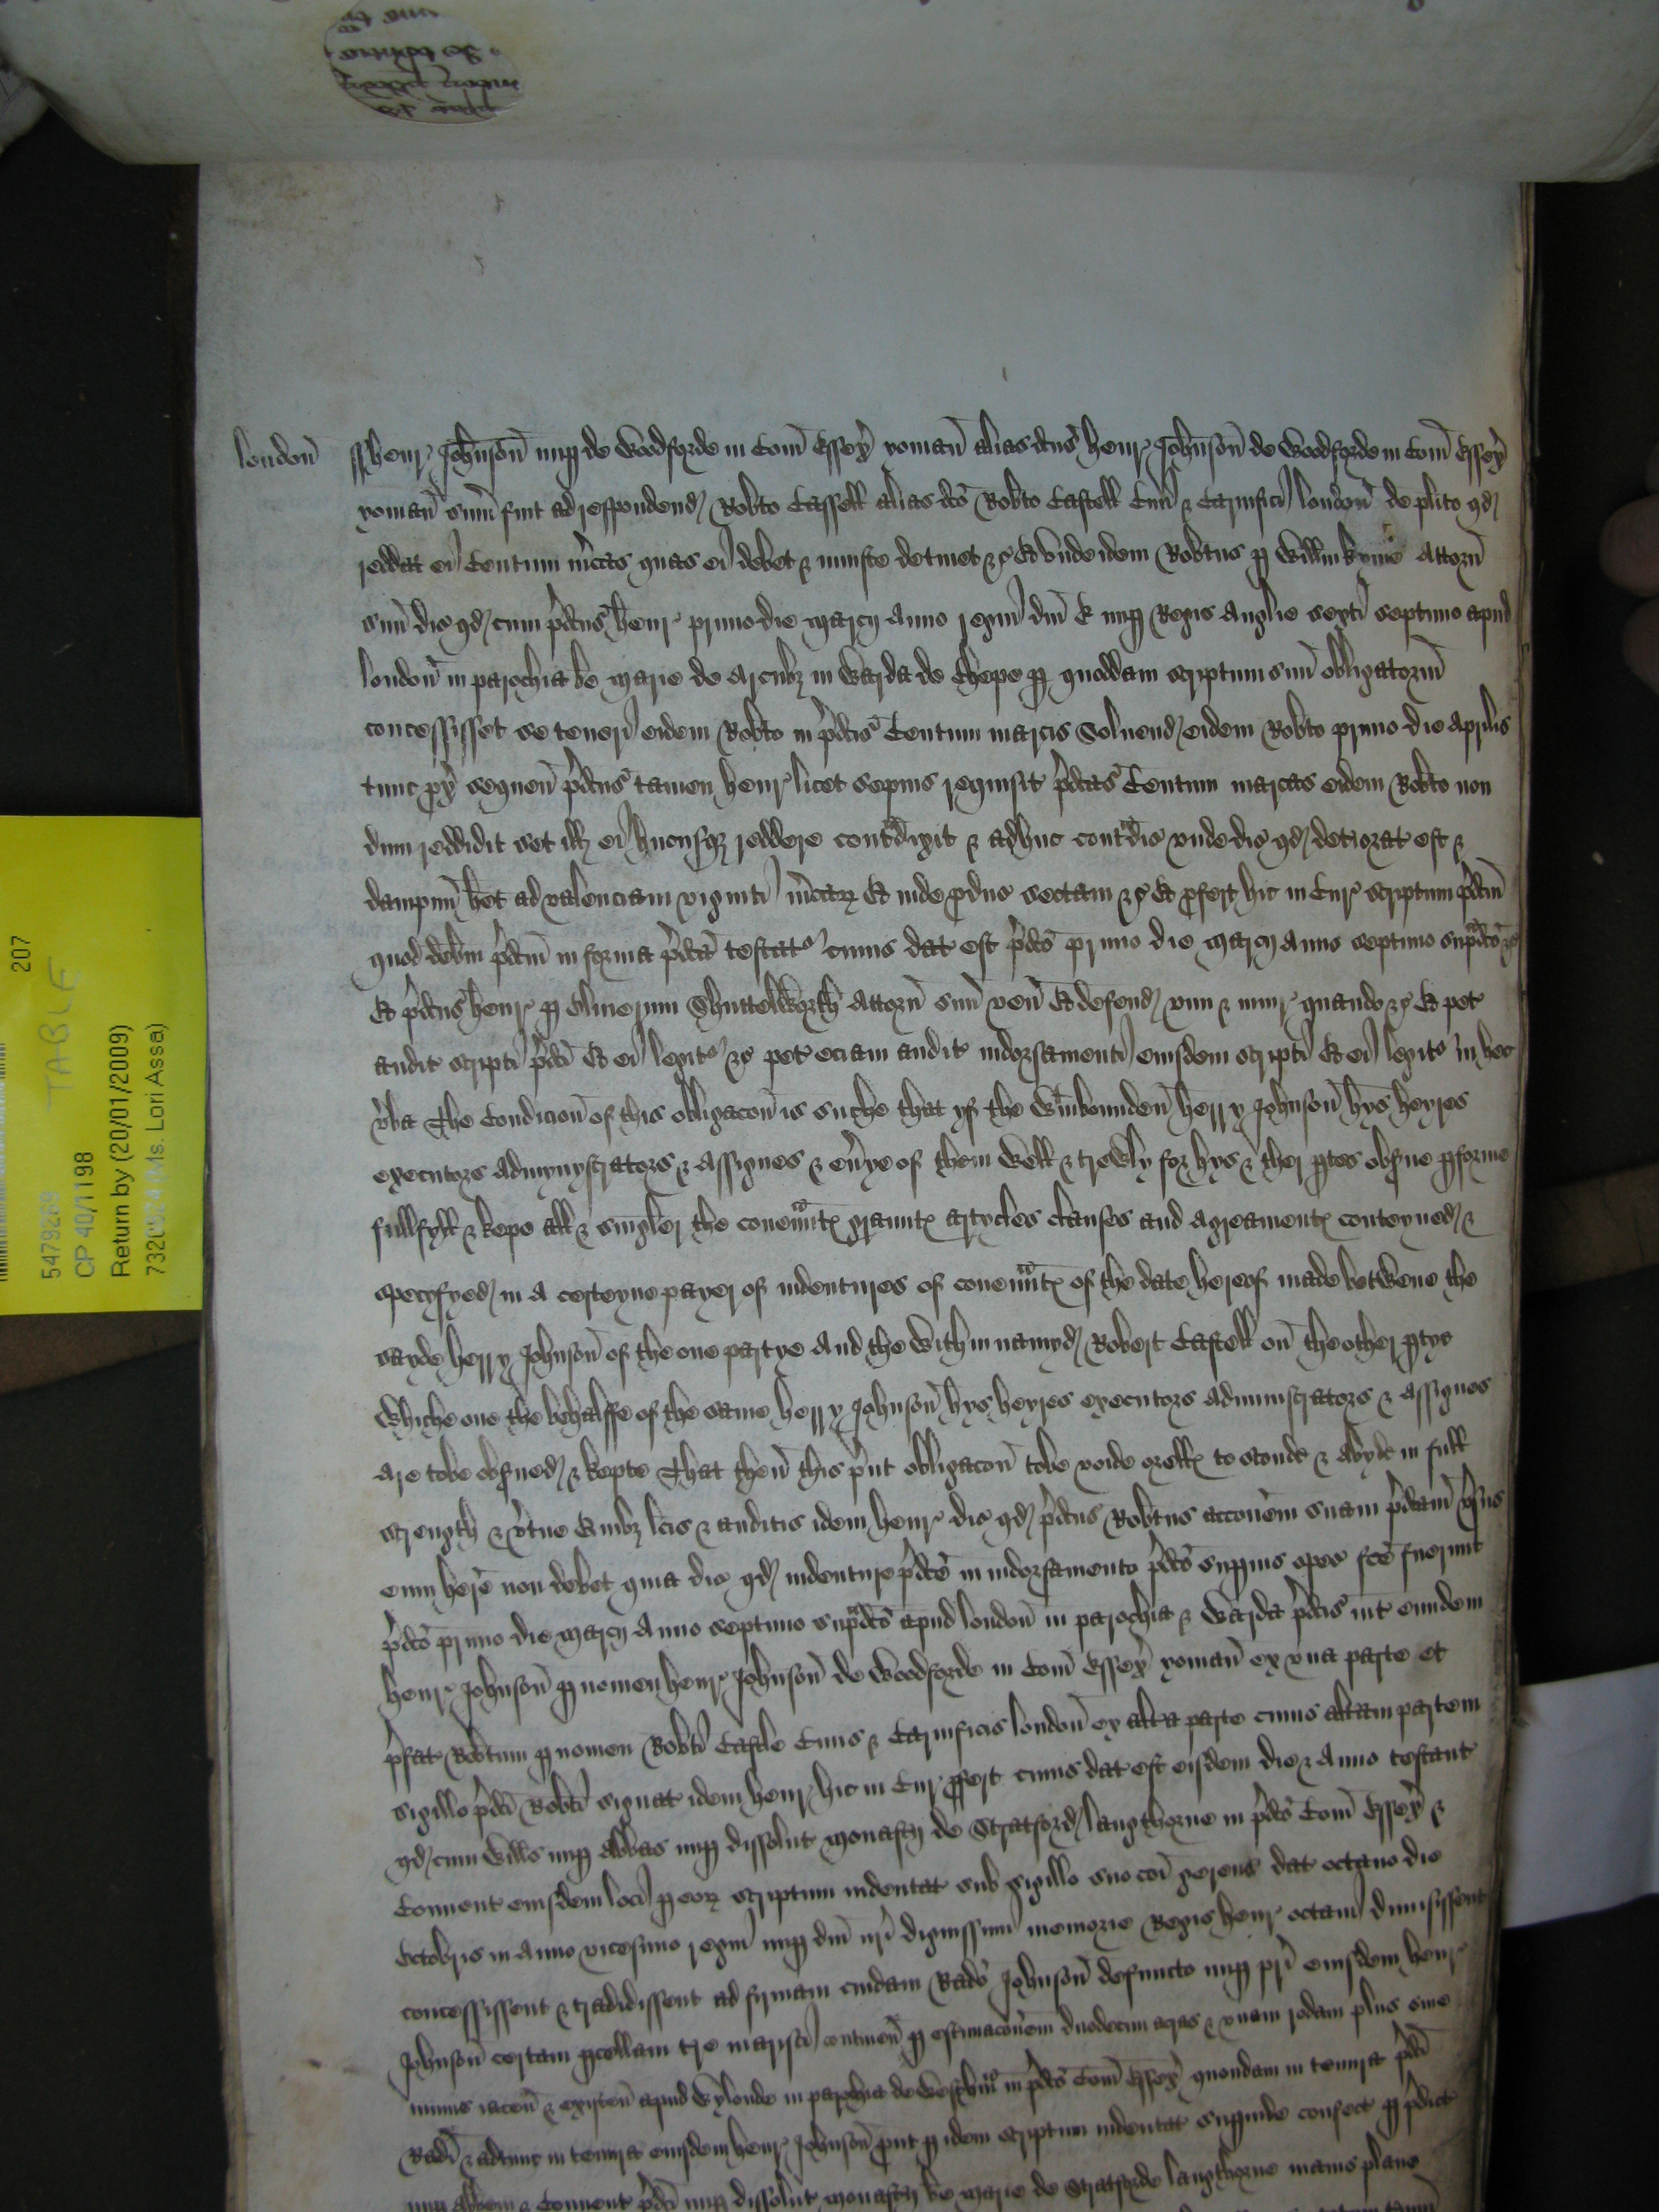 londoñ ss henr Johnson nup de Woodforde in Com Essex yoman alias dcus henr Johnson de Woodforde in Com Essex
yoman sum fuit ad respondend Robto Castell alias dco Robto Castell Civi & Carnifici london de plito qd
reddat ei Centum mcas quas ei debet & iniuste detinet &c Et unde idem Robtus p Willm kyme Attorn
suu dic qd cum pdcus henr primo die marcij Anno regni dni E nup Regis Anglie sexti septimo apud
london in parochia be marie de Arcubz in Warda de Chepe p quoddam scriptum suu obligatoriu
concessisset se teneri eidem Robto in pdcis Centum marcis Solvend eidem Robto primo die aprilis
tunc px sequen pdcus tamen henr licet sepius requisit pdcas Centum marcas eidem Robto non
dum reddidit set ill ei hucusqz reddere contradixit & adhuc contradic unde dic qd deteriorat est &
dampnu het ad valenciam viginti mcarz Et inde pduc sectam &c Et pfert hic in Cur scriptum pdcm
quod debm pdcm in forma pdca testat cuius dat est pdco primo die marcij Anno septimo supradco &c
Et pdcus henr p Olinerum Shuttelworth Attorn suu ven Et defend vim & iniur quando &c Et pet
audit scripti pdci Et ei legit &c pet eciam audit indorsamenti eiusdem scripti Et ei legit in hec
vba The Condicion of this obligacon is suche that yf the Wtinbounden herry Johnson hys heyres
executors admynystrators & assignes & evye of them Well & trewly for hys & ther ptes obsue pforme
fullfyll & kepe all & singler the covenntes grauntes artycles clauses and agreamentes conteyned &
specyfyed in a certeyne payer of indentures of covenntes of the date hereof made betwene the
sayde herry Johnson of the one partye And the Within namyd Robert Castell on the other ptye
Whiche one the behalffe of the same herry Johnson hys heyres executors administrators & assignes
Are tobe obsued & kepte That then this psnt obligacon tobe voide orelles to stonde & abyde in full
strength & vtue Quibz lcis & auditis idem henr dic qd pdcus Robtus acconem suam pdcam vsus
eum here non debet quia dic qd indenture pdce in indorsamento pdco supius spec fce fuerunt
pdco primo die marcij Anno septimo supradco apud london in parochia & Warda pdcis int eundem
henr Johnson p nomen henr Johnson de Woodforde in Com Essex yoman ex una parte et
pfat Robtum p nomen Robti Castle Civis & Carnificis london ex altra parte cuius altam partem
sigillo pdci Robti signat idem henr hic in Cur pfert cuius dat est eisdem die & Anno testant
qd cum Wills nup Abbas nup dissolut monastij de Stratford langthorne in pdco Com Essex &
Convent eiusdem loci p eorz scriptum indentat sub sigillo suo coi gerens dat octavo die
Octobris in Anno vicesimo regni nup dni nri dignissimi memorie Regis henr octavi dimisissent
concessissent & tradidissent ad firmam cuidam Rado Johnson defuncto nup pri eiusdem henr
Johnson certam pcellam tre marisci continen p estimaconem duodecim acras & unam rodam plus sive
minus iacen & existen apud Wylonde in parochia de Westhm in pdco Com Essex quondam in tenura pdci
Radi & adtunc in tenura eiusdem henr Johnson put p idem scriptum indentat supinde confect p pdict
nup Abbem & Convent pdci nup dissolut monastij be marie de Stratforde langthorne manus plane

207
TABLE
5479269
CP 40/1198
Return by (20/01/2009)
(Ms. Lori Assa)